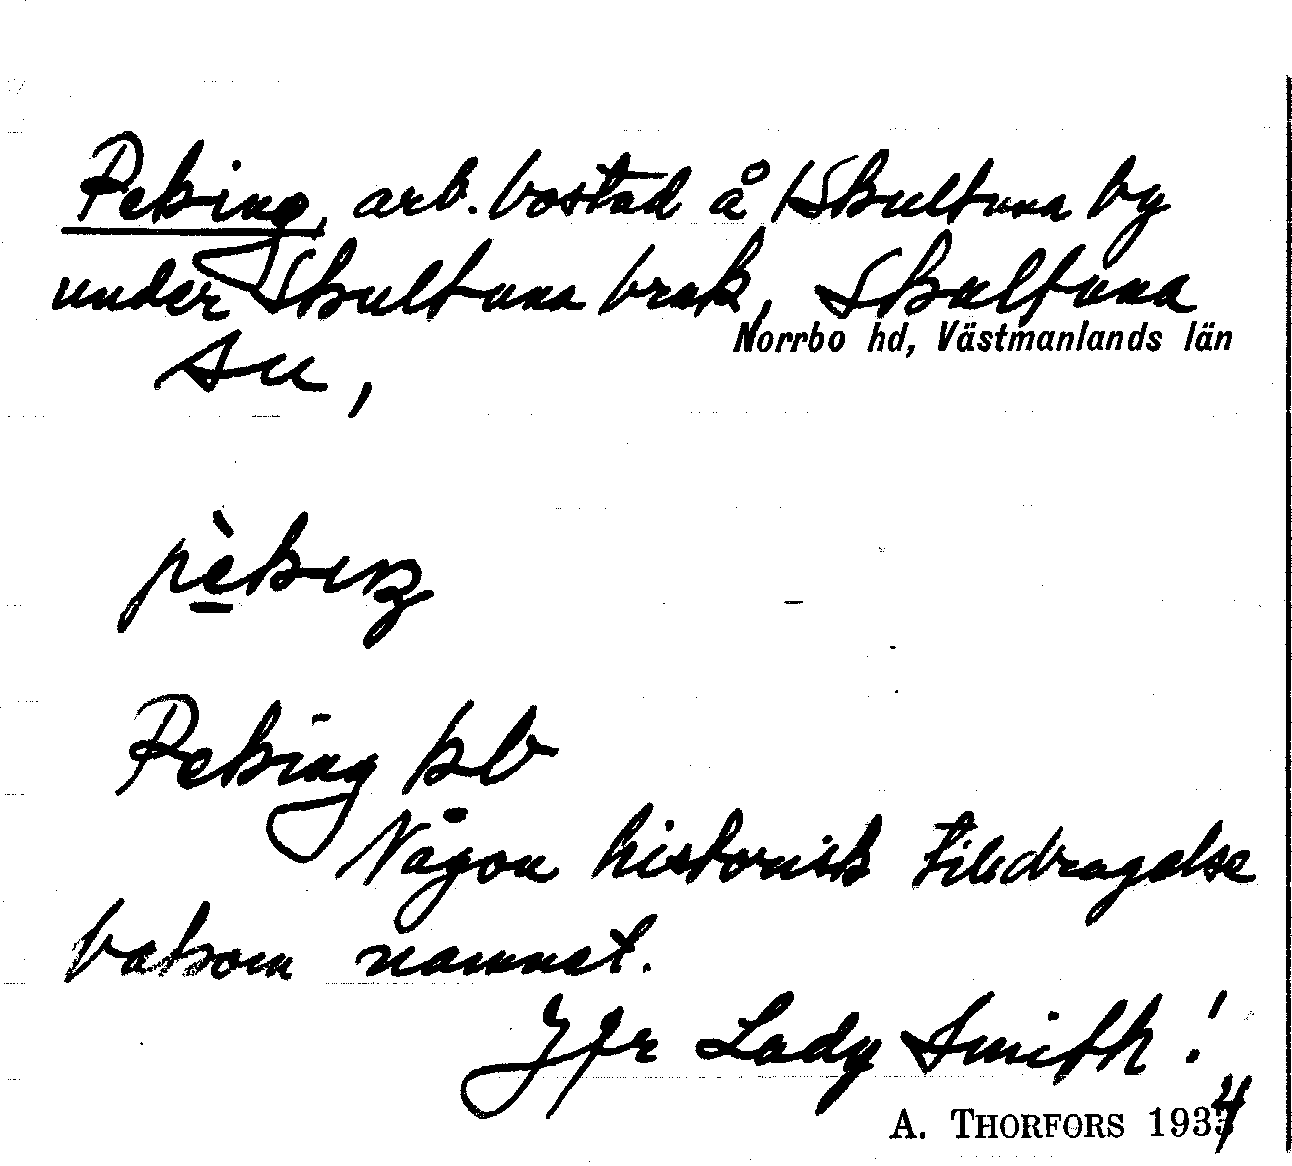 Peking, arb. bostad å Skultuna by
under Skultuna bruk, Skultuna
Norrbo hd, Västmanlands län
sn,
pèkiŋ
Peking kb
Någon historisk tilldragelse
bakom namnet.
Jfr Lady Smith!
A. THORFORS 1934